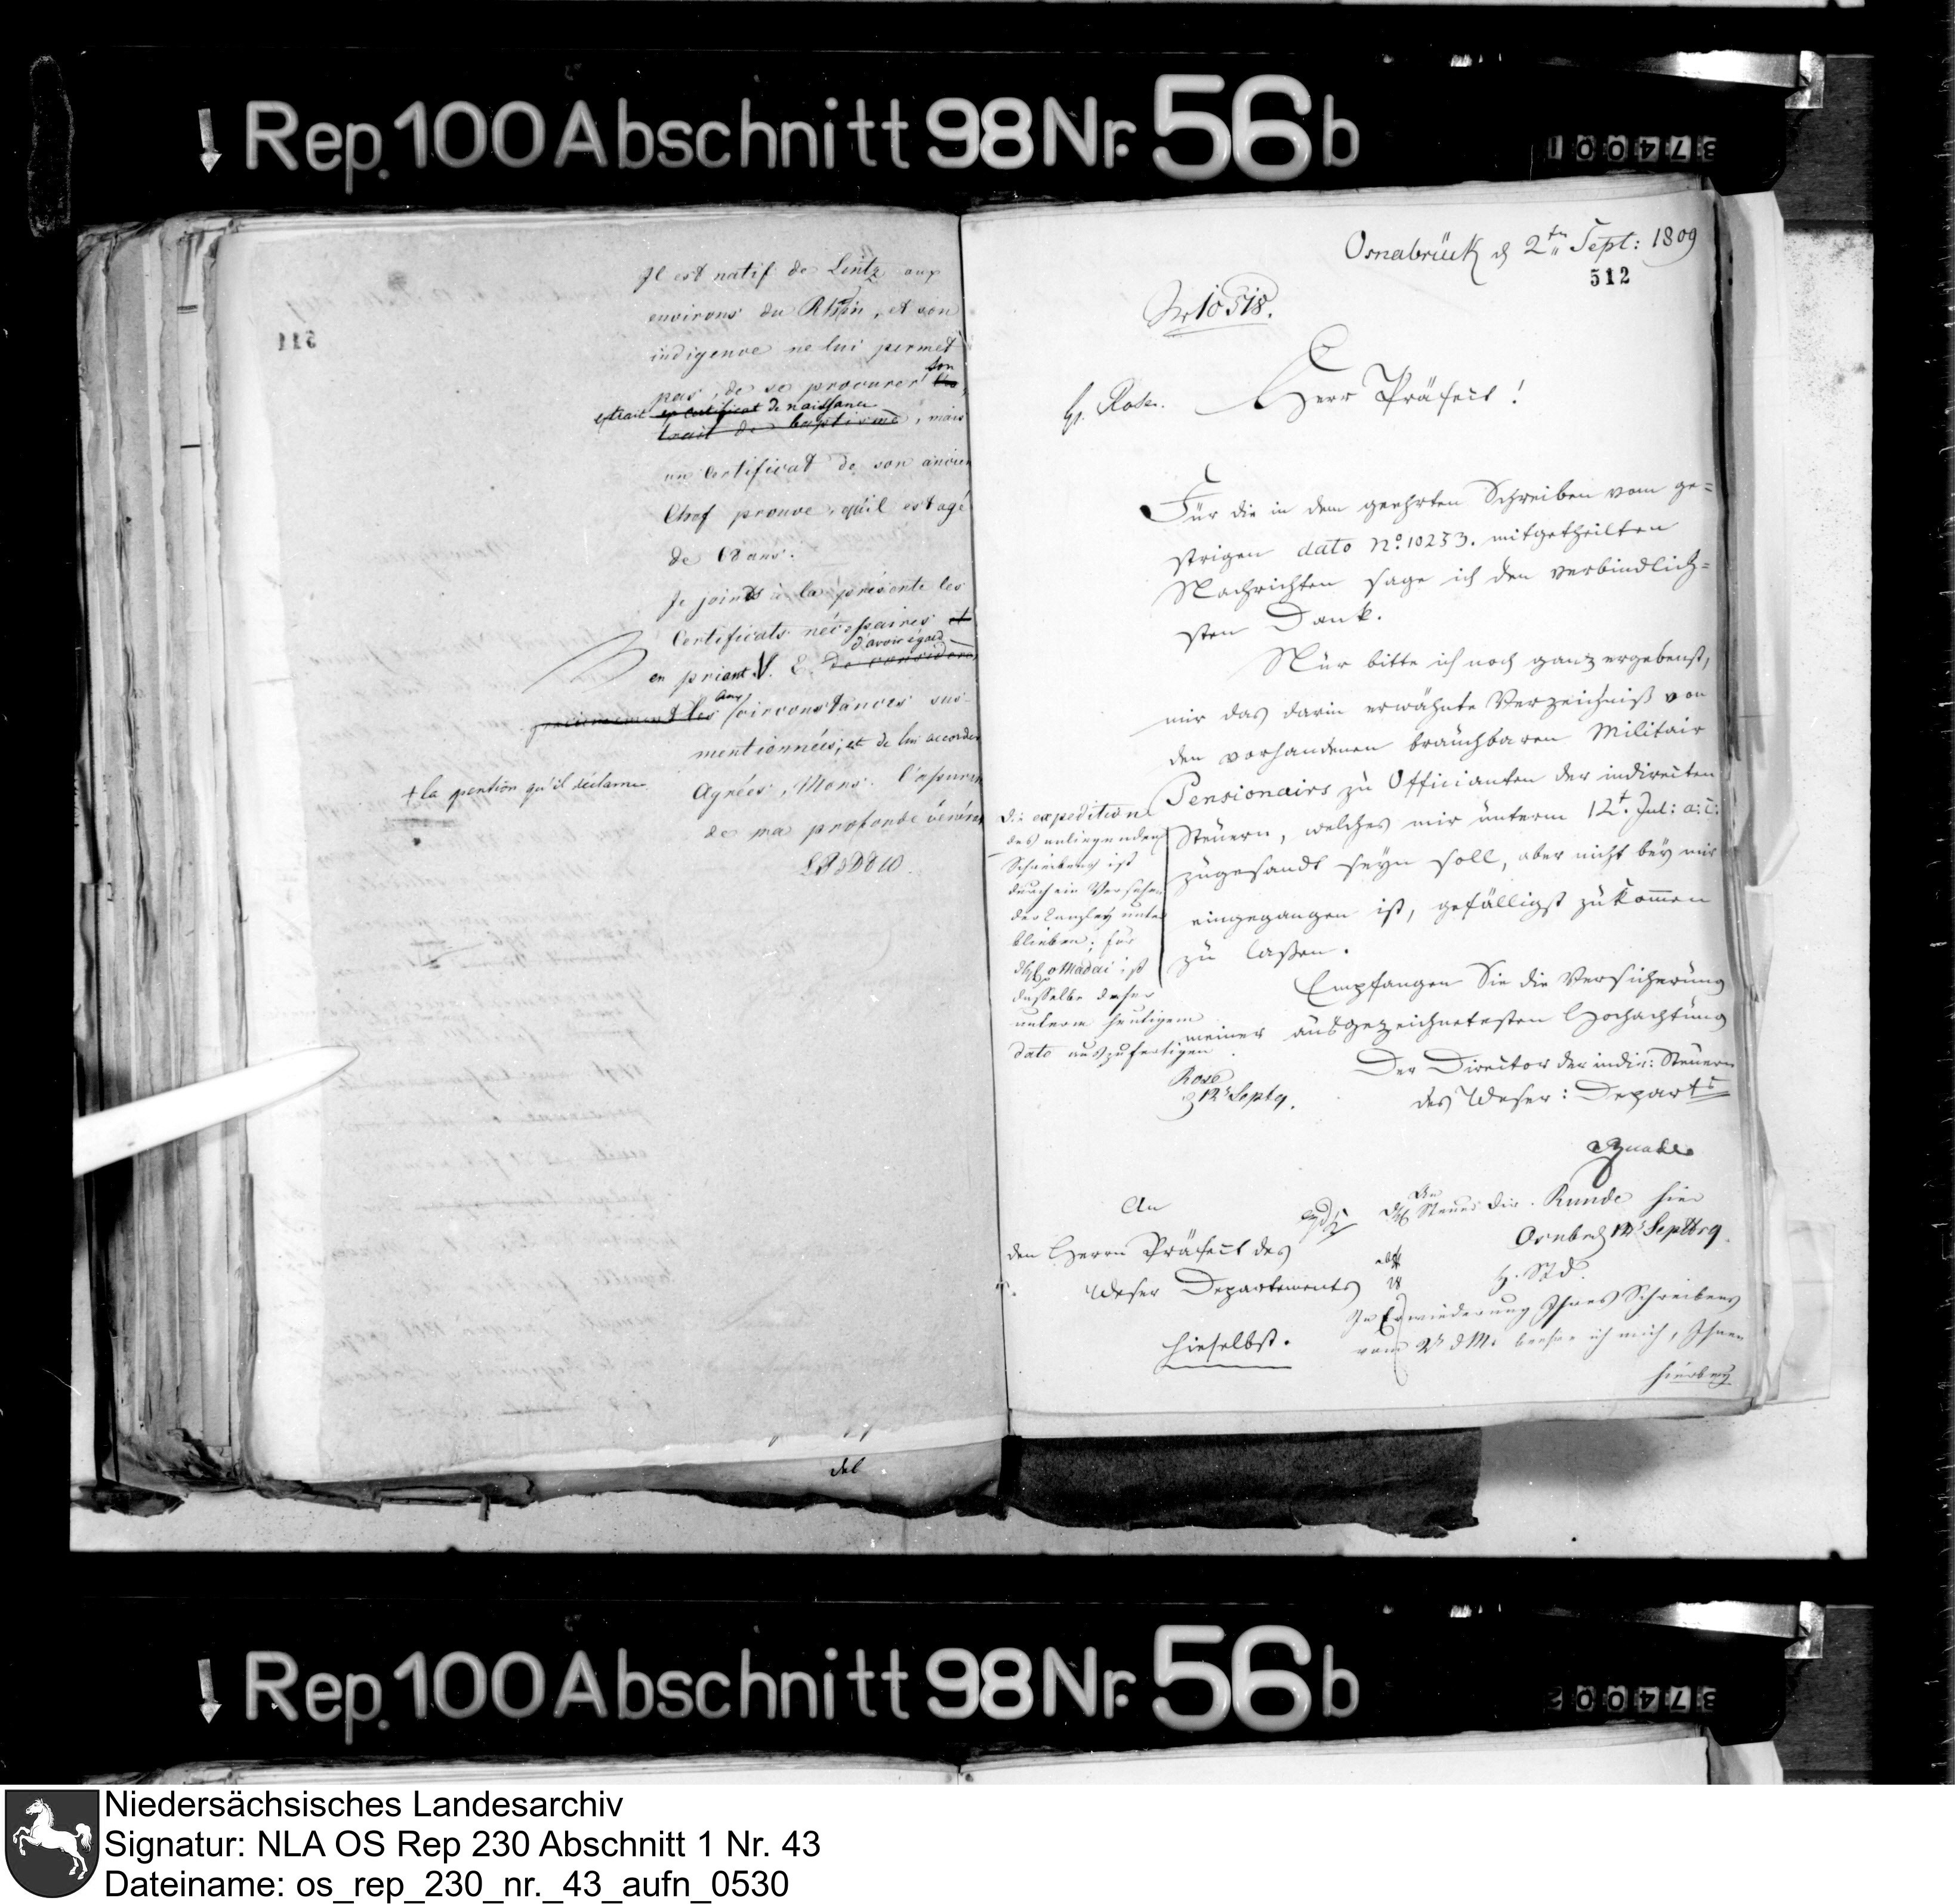 Rep. 100 Abschnitt 98 Nr. 56 b
374001
Il est natif de Lintz aux
environs du Rhin, et son
indigence ne lui permet
pas, de se procurer son
extrait de naissance
trait de baptisme, mais
un Certificat de son ancien
Chef prouve, qu'il est agé
de 68 ans.
Je joins à la présente les
Certificats nécessaires et
d'avoir égard
en priant V. E. de considerer
les aux circonstances sus-
mentionnées, et de lui accorder
+ la pention qu'il réclame
Agrées, Mons. l'assuran
de ma profonde vénéra
del
Osnabrück d 2ten Sept: 1809
512
Nr 10518.
H. Rose.
Herr Präfect!
Für die in dem geehrten Schreiben vom ge=
strigen dato No. 10233. mitgetheilten
Nachrichten sage ich den verbindlich=
sten Dank.
Nur bitte ich noch ganz ergebenst,
mir das darin erwähnte Verzeichniß von
den vorhandenen brauchbaren Militair
Pensionairs zu Officianten der indirecten
Steuern, welches mir unterm 12t. Jul: a: c:
zugesandt seyn soll, aber nicht bey mir
eingegangen ist, gefälligst zukommen
zu laßen.
Empfangen Sie die Versicherung
meiner ausgezeichnetesten Hochachtung
Der Director der indir: Steuern
des Weser: Departs
Die expedition
des anliegenden
Schreibens ist
durch ein Versehen
der Canzley unter
blieben; für
Madai ist
dasselbe daher
unterm heutigem
dato auszufertigen.
Rose
d 12t Sept 9.
An
den Herrn Präfect des
Weser Departements
hieselbst.
An
Steuer Dir. Runde hier
Osnbr d 12t Septbr 9.
In Erwiederung Ihres Schreibens
vom 2t d M. beehre ich mich, Ihnen
hierbey
Rep. 100 Abschnitt 98 Nr. 56 b
374002
Niedersächsisches Landesarchiv
Signatur: NLA OS Rep 230 Abschnitt 1 Nr. 43
Dateiname: os_rep_230_nr._43_aufn_0530